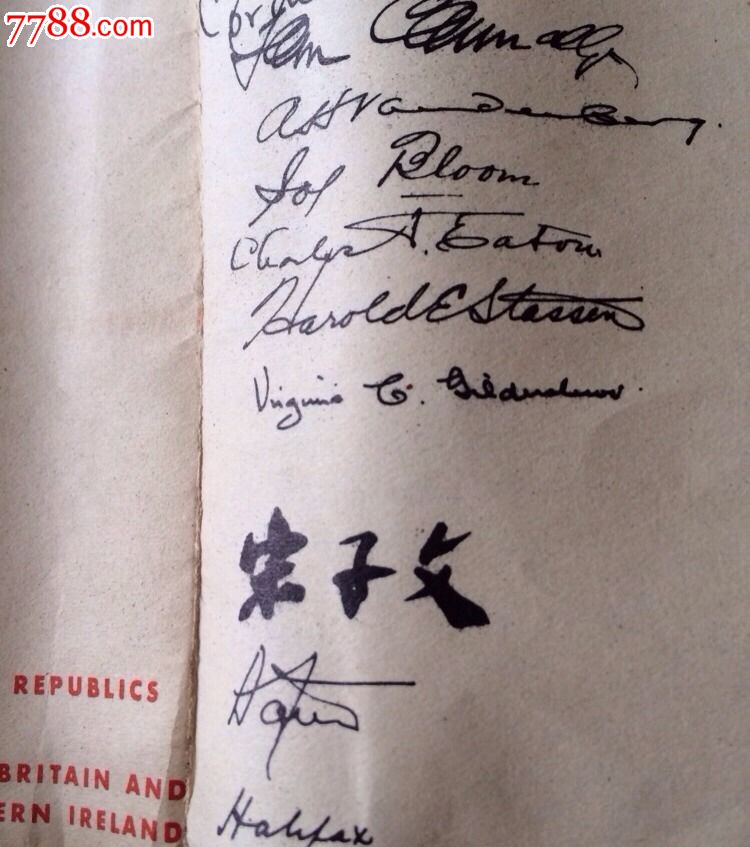 7788.com
Tom Connally
A H Vandenberg.
Sol Bloom
Charles A. Eaton
Harold E Stassen
Virginia C. Gildersleeve
宋子文
REPUBLICS
BRITAIN AND
ERN IRELAND
Halifax